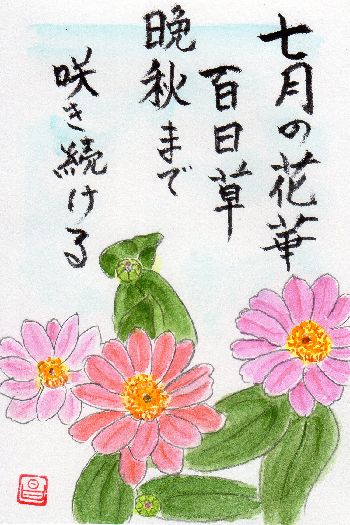 七月の花華
百日草
晩秋まで
咲き続ける